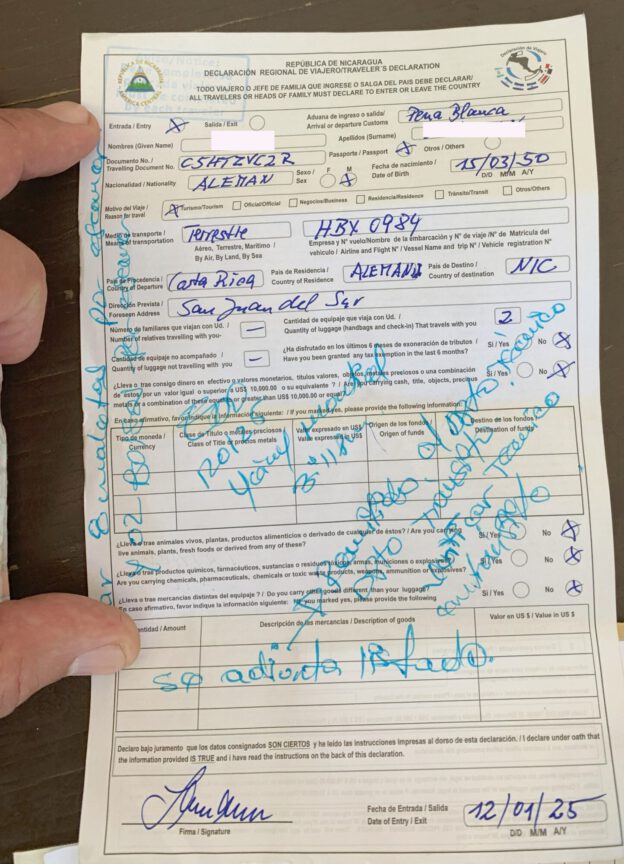 REPÚBLICA DE NICARAGUA
DECLARACIÓN REGIONAL DE VIAJERO/TRAVELER´S DECLARATION
TODO VIAJERO O JEFE DE FAMILIA QUE INGRESE O SALGA DEL PAIS DEBE DECLARAR/
ALL TRAVELERS OR HEADS OF FAMILY MUST DECLARE TO ENTER OR LEAVE THE COUNTRY
Entrada / Entry X Salida / Exit Aduana de ingreso o salida/ Peña Blanca
Arrival or departure Customs
Nombres (Given Name) Apellidos (Surname)
Documento No. / C5HTZVC2R Pasaporte / Passport X Otros / Others
Travelling Document No.
Nacionalidad / Nationality ALEMAN Sexo / Sex F M X Fecha de nacimiento / 15/03/50
Date of Birth D/D M/M A/Y
Motivo del Viaje / X Turismo/Tourism Oficial/Official Negocios/Business Residencia/Residence Tránsito/Transit Otros/Others
Reason for travel
Medio de transporte / Terrestre HBX 0984
Means of transportation Aéreo, Terrestre, Marítimo / Empresa y N° vuelo/Nombre de la embarcación y N° de viaje /N° de Matricula del
By Air, By Land, By Sea vehiculo / Airline and Flight N° / Vessel Name and trip N° / Vehicle registration N°
País de Procedencia / Costa Rica País de Residencia / ALEMAN País de Destino / NIC
Country of Departure Country of Residence Country of destination
Dirección Prevista / San Juan del Sur
Foreseen Address
Número de familiares que viajan con Ud. / — Cantidad de equipaje que viaja con Ud. / 2
Number of relatives travelling with you- Quantity of luggage (handbags and check-in) That travels with you
Cantidad de equipaje no acompañado / — ¿Ha disfrutado en los últimos 6 meses de exoneración de tributos / Si / Yes No X
Quantity of luggage not travelling with you Have you been granted any tax exemption in the last 6 months?
¿Lleva o trae consigo dinero en efectivo o valores monetarios, títulos valores, objetos, metales preciosos o una combinación Si / Yes No X
de éstos por un valor igual o superior a US$ 10,000.00 o su equivalente ? / Are you carrying cash, title, objects, precious
metals or a combination of these equal to or greater than US$ 10,000.00 or equal
En caso afirmativo, favor indique la información siguiente: / If you marked yes, please provide the following information
Tipo de moneda / Clase de Título o metales preciosos Valor expresado en US$ / Origen de los fondos/ Destino de los fondos/
Currency Class of Title or precios metals Value expressed in US$ Origin of funds Destination of funds
¿Lleva o trae animales vivos, plantas, productos alimenticios o derivado de cualquiera de éstos? / Are you carrying Si / Yes No X
live animals, plants, fresh foods or derived from any of these?
¿Lleva o trae productos químicos, farmacéuticos, sustancias o residuos tóxicos, armas, municiones o explosivos? Si / Yes No X
Are you carrying chemicals, pharmaceuticals, chemicals or toxic waste products, weapons, ammunition or explosives?
¿Lleva o trae mercancías distintas del equipaje ? / Do you carry any goods different than your luggage? Si / Yes No X
En caso afirmativo, favor indique la información siguiente: / If you marked yes, please provide the following
Cantidad / Amount Descripción de las mercancías / Description of goods Valor en US$ / Value in US $
se adjunta listado.
Declaro bajo juramento que los datos consignados SON CIERTOS y he leído las instrucciones impresas al dorso de esta declaración. / I declare under oath that
the information provided IS TRUE and i have read the instructions on the back of this declaration.
Firma / Signature
Fecha de Entrada / Salida 12/01/25
Date of Entry / Exit D/D M/M A/Y